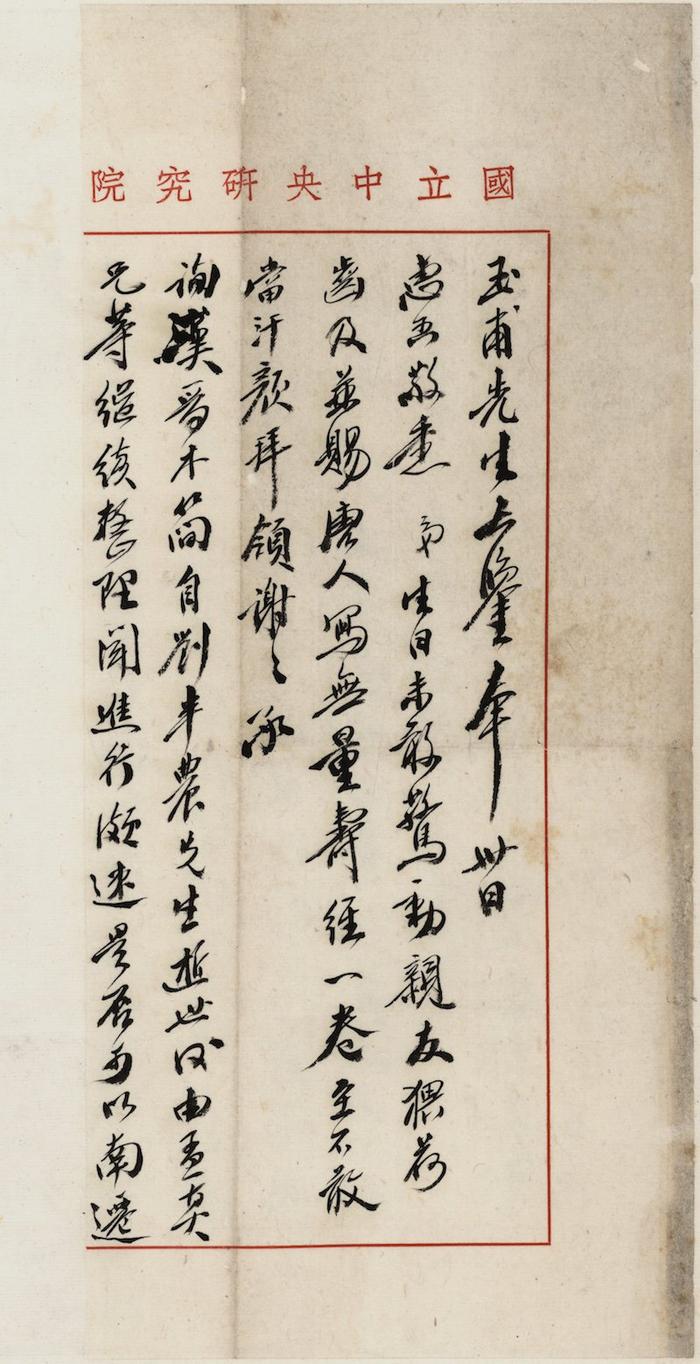 國立中央研究院
玉甫先生大鑒奉卅日
惠書敬悉弟生日未敢驚動親友猥荷
齒及並賜唐人寫無量壽經一卷至不敢
當汗顏拜領謝々承
詢漢晉木簡自劉半農先生逝世後由孟真
兄等繼續整理聞進行頗速是否可以南遷